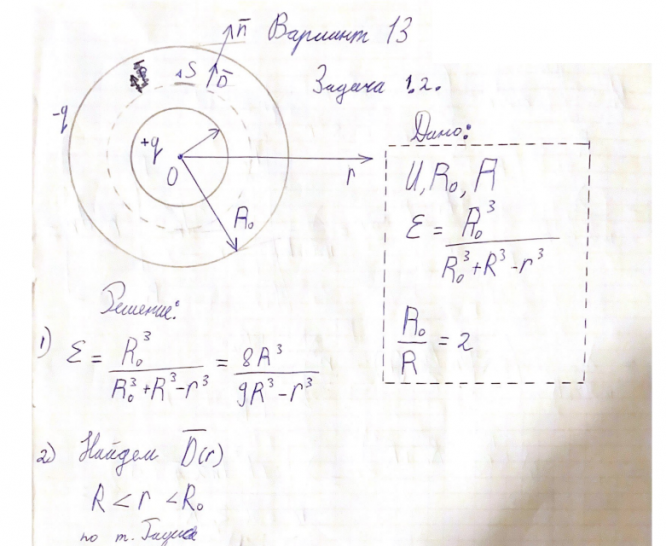 n̄ Вариант 13
ΔS D̄
Задача 1.2.
-q
+q
O r
R₀
Дано:
U, R₀, R
ε = R₀³ / (R₀³ + R³ - r³)
R₀ / R = 2
Решение:
1) ε = R₀³ / (R₀³ + R³ - r³) = 8R³ / (9R³ - r³)
2) Найдем D̄(r)
R < r < R₀
по т. Гаусса